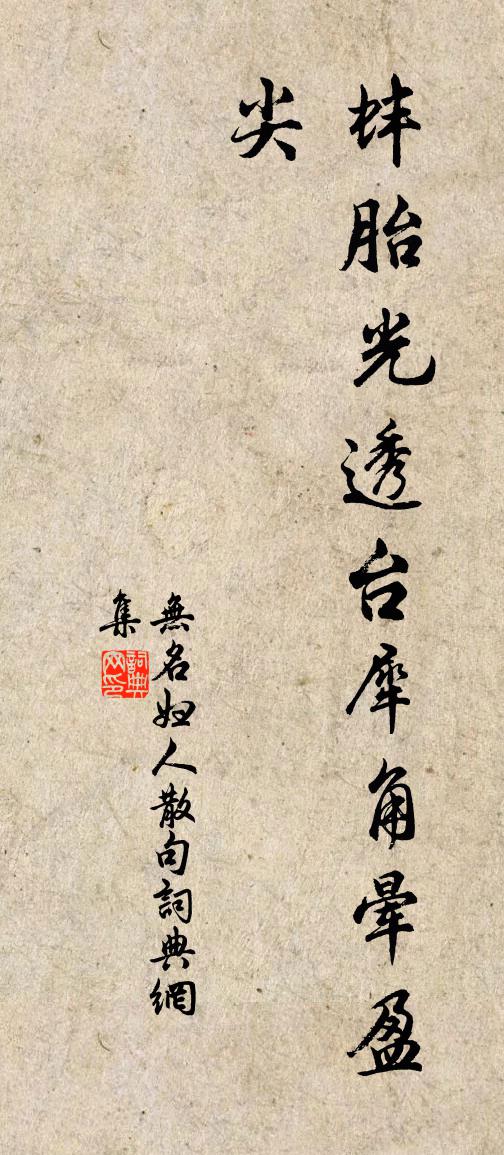 蚌胎光透台犀角暈盈
尖
無名婦人散句詞典網
集
詞典
网印